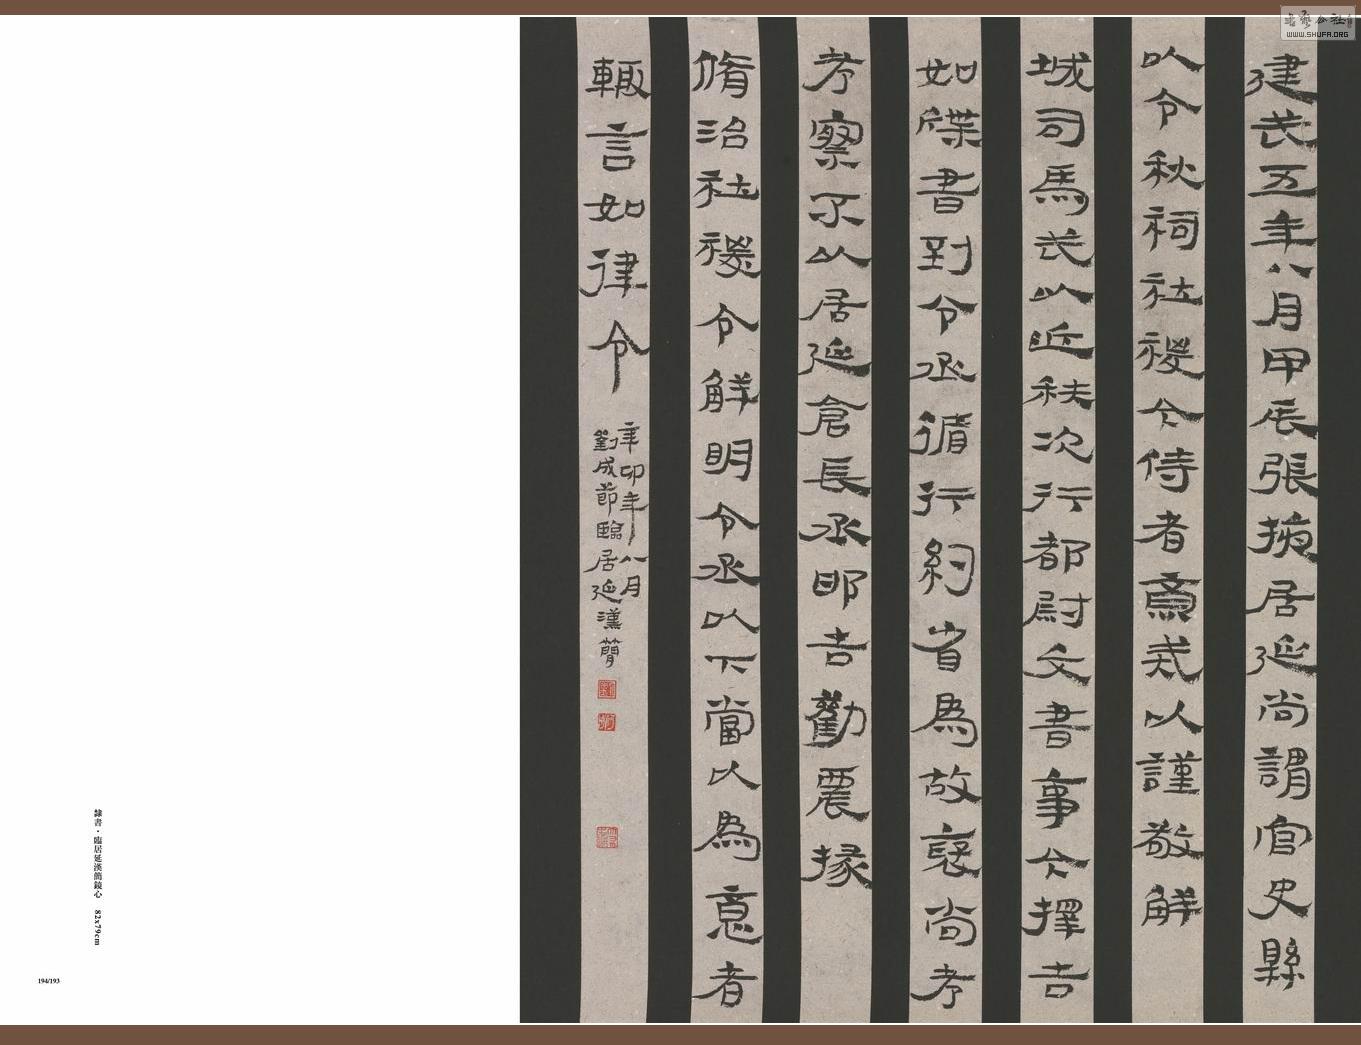 建武五年八月甲辰張掖居延尚謂官史縣
以令秋祠社稷今侍者齋戒以謹敬鮮
城司馬武以近秩次行都尉文書事今擇吉
如牒書到令丞循行約省為故裏尚考
考察不以居延倉長丞耶吉勸農掾
脩治社稷令鮮明令丞以下當以為意者
輒言如律令
辛卯年八月
劉成節臨居延漢簡
隸書·臨居延漢簡鏡心 82x79cm
194/193
書藝公社
WWW.SHUFA.ORG